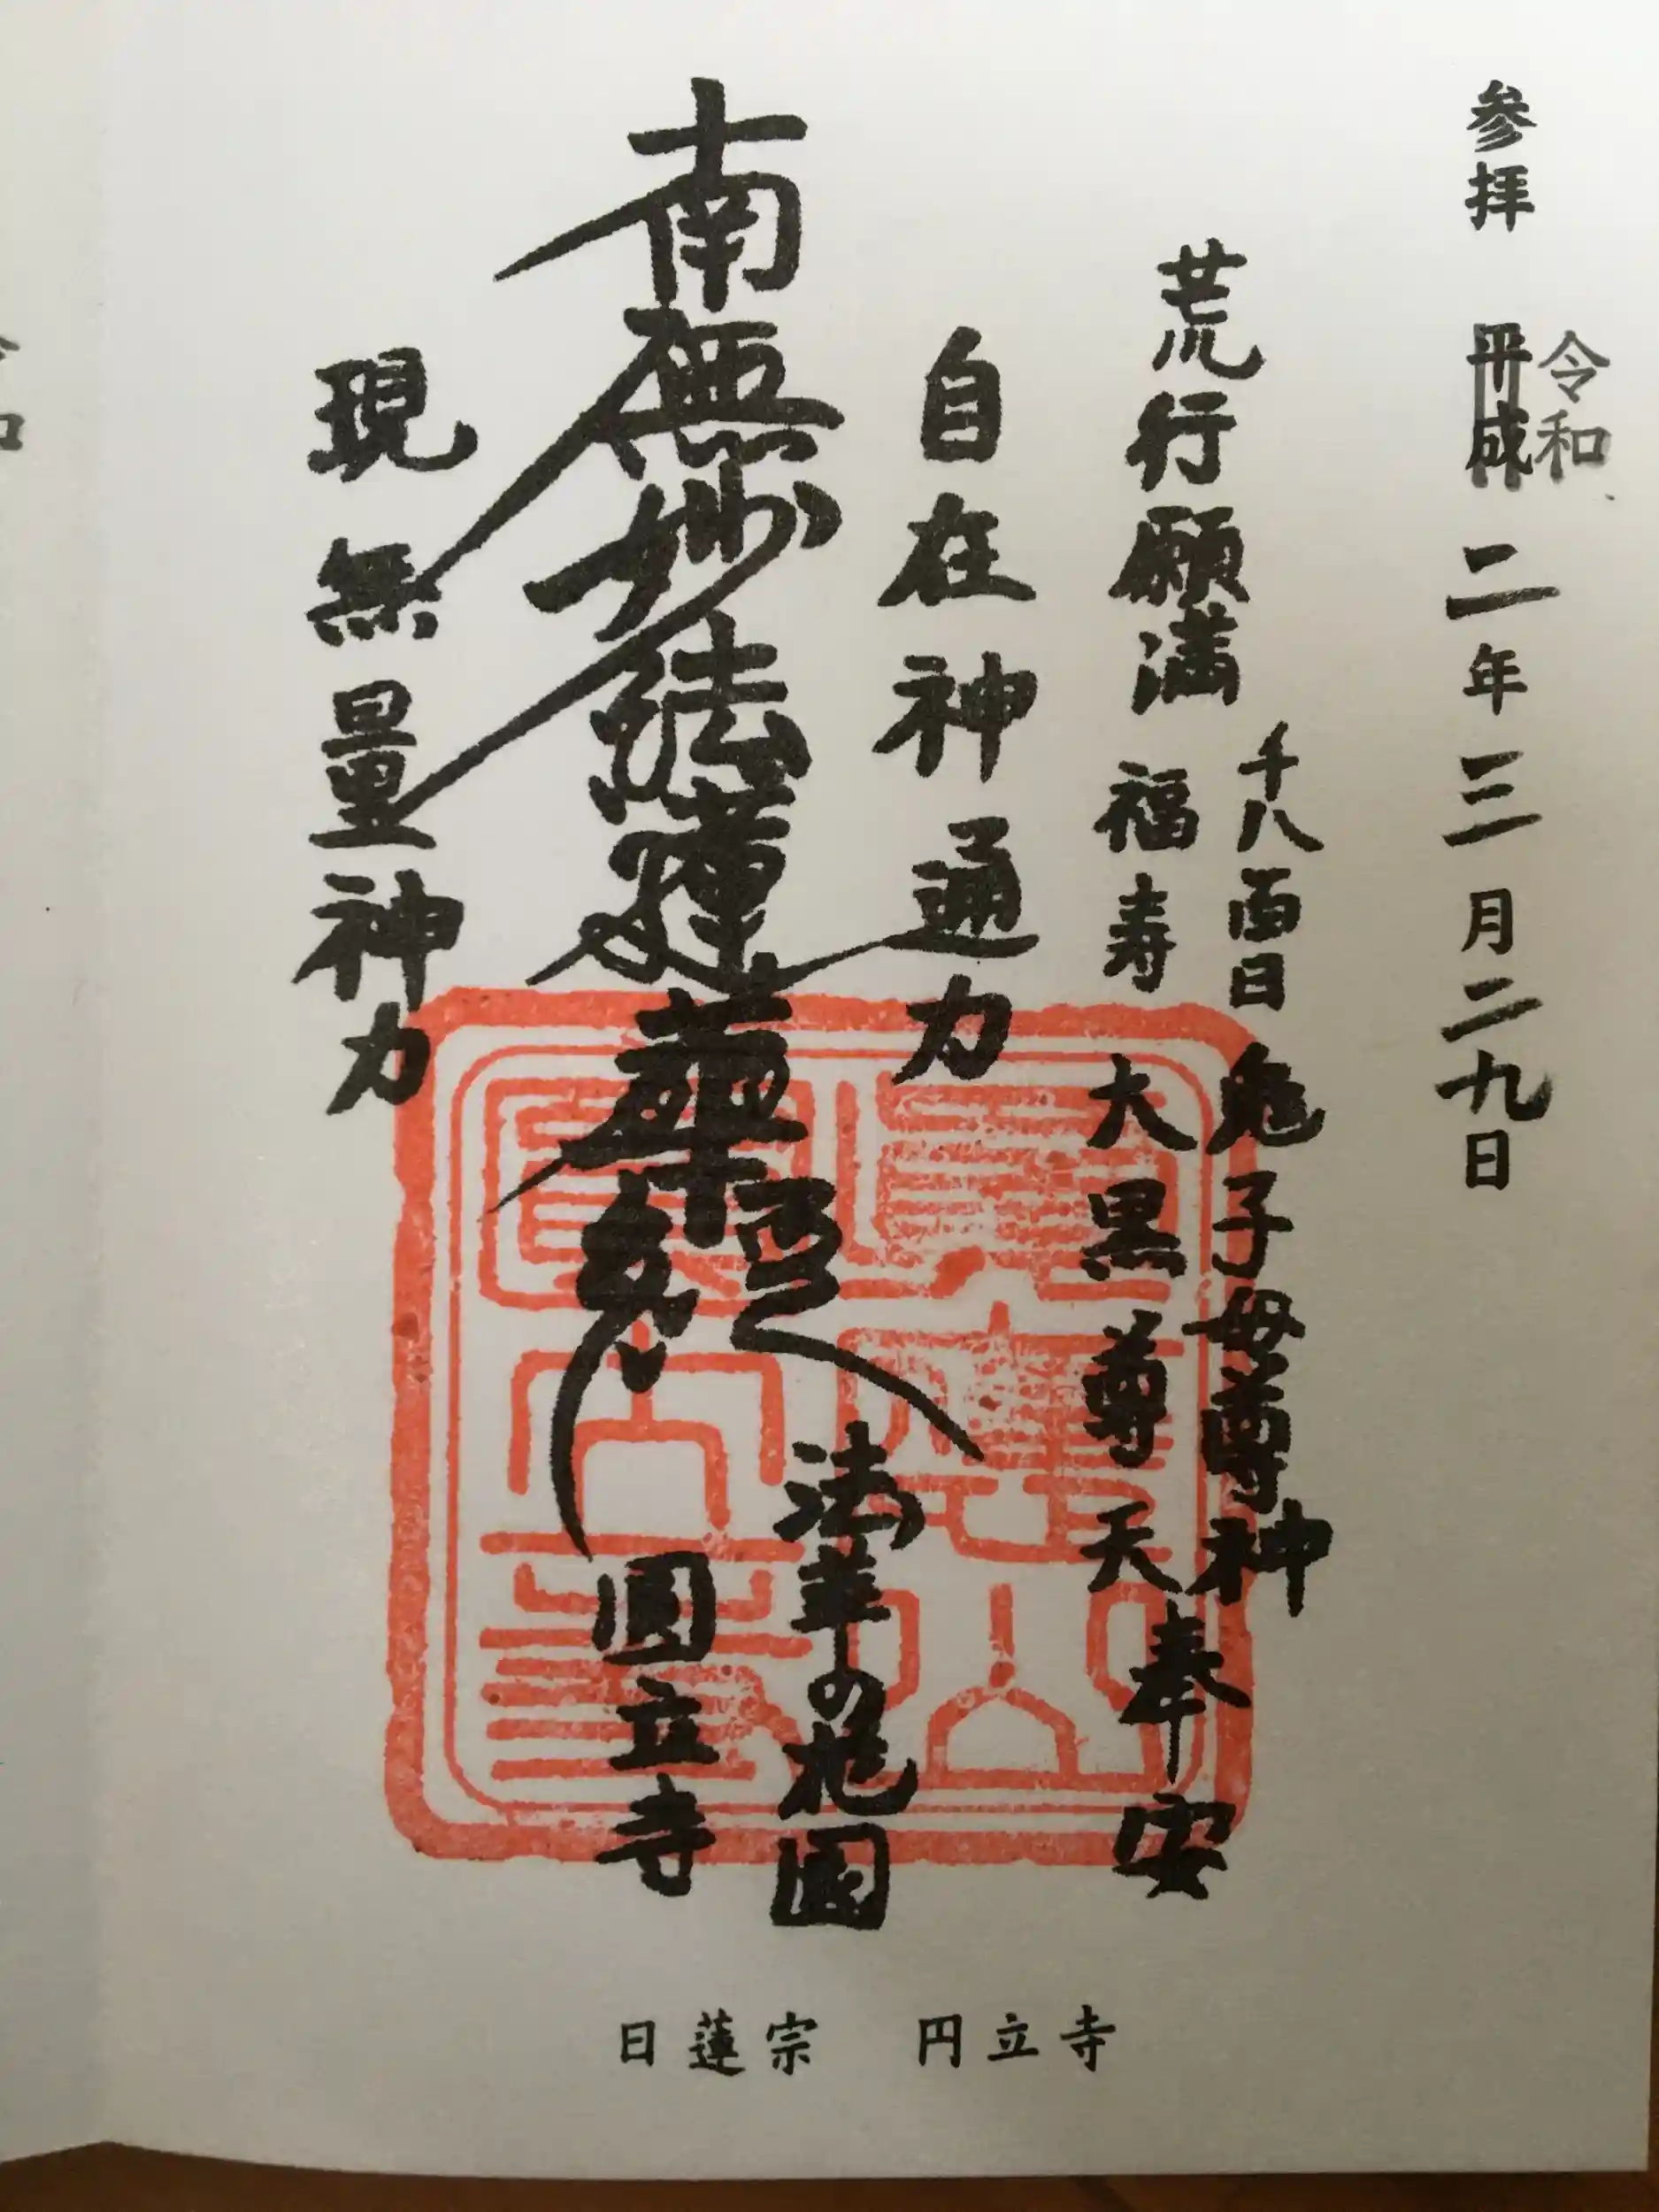 参拝 平成 二年三月二九日
令和
荒行願満
千八百日 鬼子母尊神
福寿 大黒尊天
奉安
自在神通力
南無妙法蓮華経
現無量神力
法華の花園
圓立寺
日蓮宗 円立寺